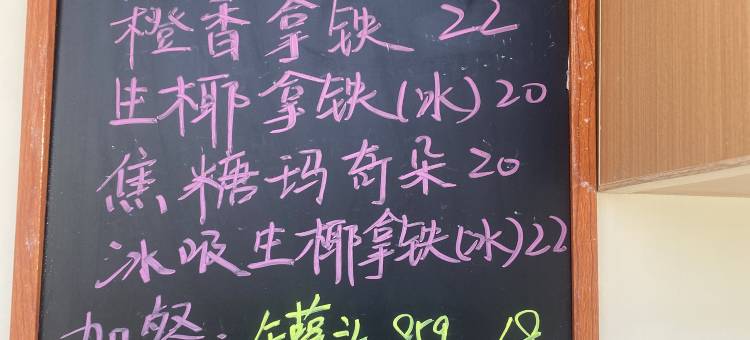 橙香拿铁 22
生椰拿铁(冰)20
焦糖玛奇朵 20
冰吸生椰拿铁(冰)22